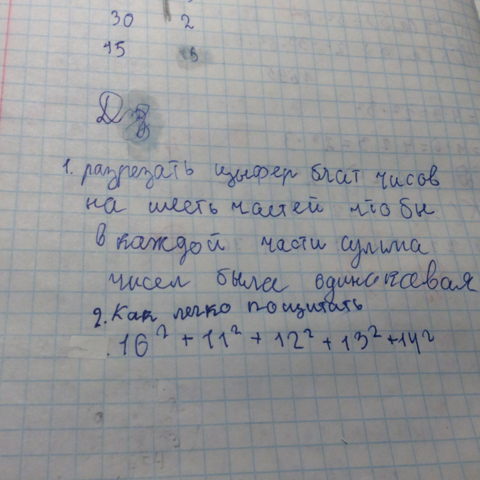 30 2
15
ДЗ
1. разрезать цыфер блат чисов
на шесть частей что бы
в каждой части сумма
чисел была одинакавая
2. Как легко пощитать
16² + 11² + 12² + 13² + 14²